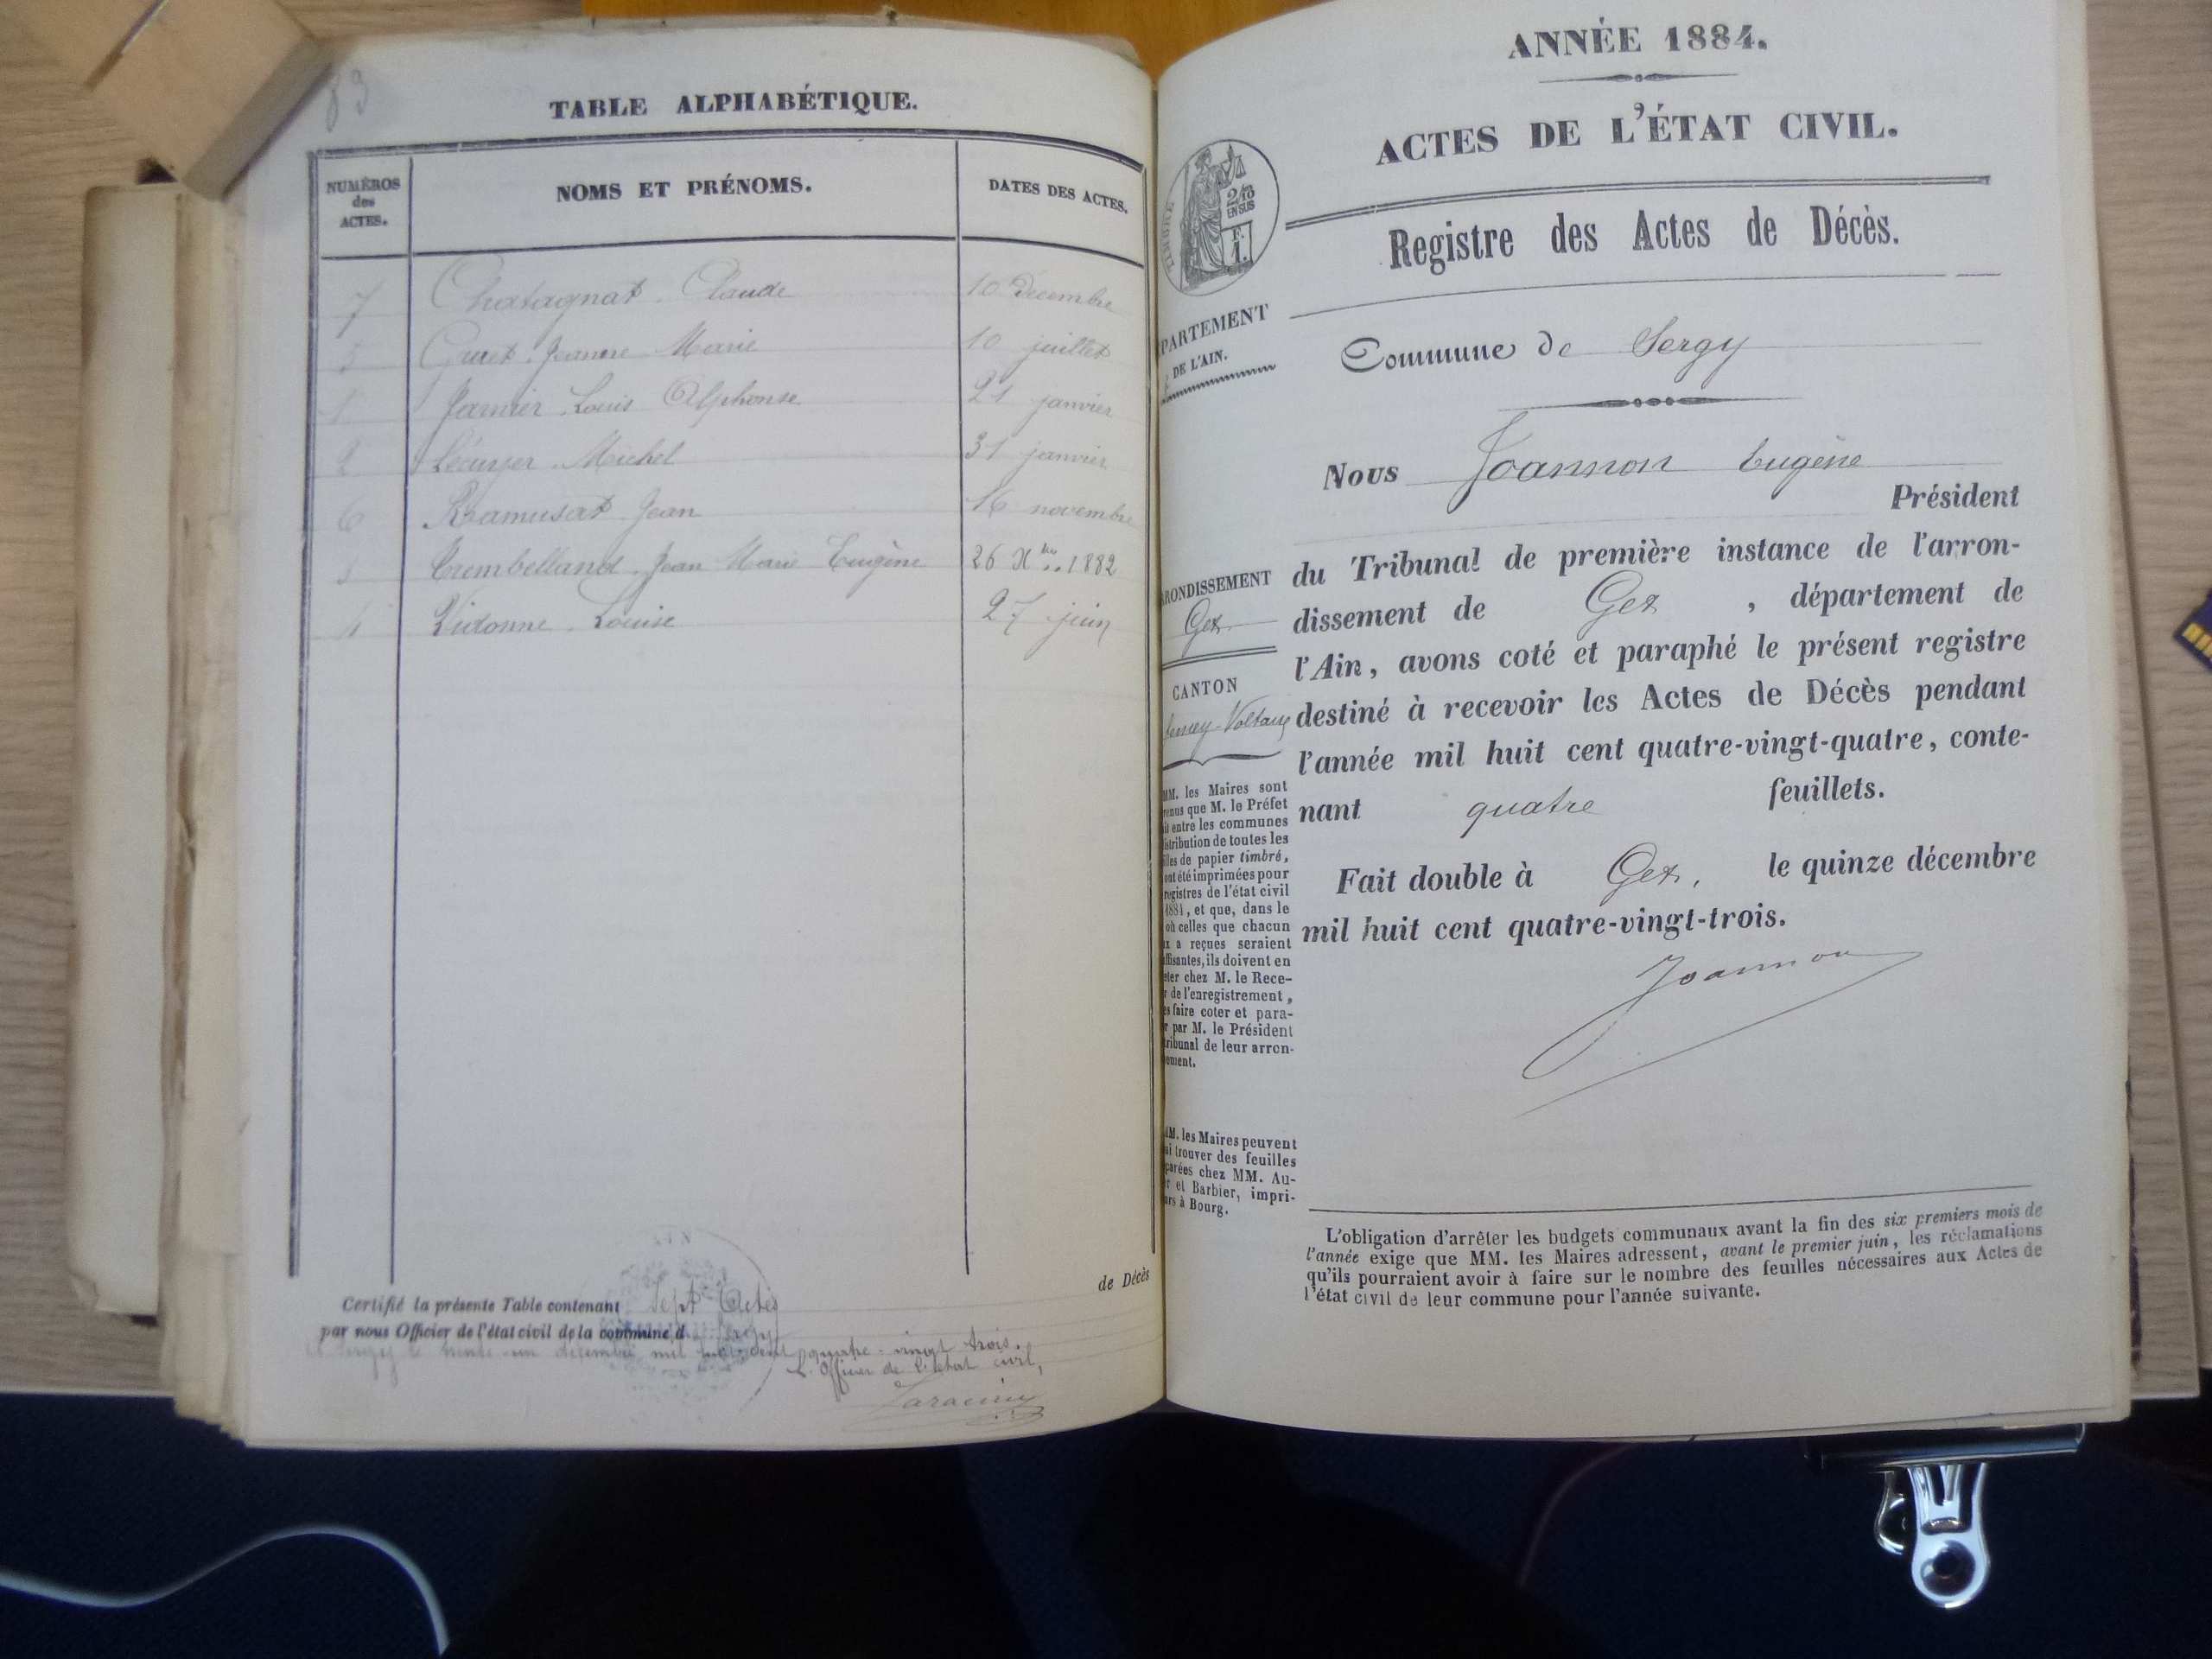 83
TABLE ALPHABÉTIQUE.
NUMÉROS des ACTES.
NOMS ET PRÉNOMS.
DATES DES ACTES.
7 Chatagnat Claude 10 Décembre
5 Jeanne Marie 10 juillet
1 Janier Louis Alphonse 21 janvier
2 Lécuyer Michel 31 janvier
6 Ramusat Jean 16 novembre
3 Trembelland Jean Marie Eugène 26 Xbre 1882
4 Vidonne Louise 27 juin
Certifié la présente Table contenant Sept Actes de Décès
par nous Officier de l'état civil de la commune d Sergy
à Sergy le trente-un décembre mil huit cent quatre-vingt trois.
L'Officier de l'état civil,
ANNÉE 1884.
ACTES DE L'ÉTAT CIVIL.
TIMBRE
2/10
EN SUS
F.
1.
Registre des Actes de Décès.
PARTEMENT
DE L'AIN.
Commune de Sergy
Nous Joannon Eugène
Président
du Tribunal de première instance de l'arron-
dissement de Gex, département de
l'Ain, avons coté et paraphé le présent registre
destiné à recevoir les Actes de Décès pendant
l'année mil huit cent quatre-vingt-quatre, conte-
nant quatre feuillets.
Fait double à Gex, le quinze décembre
mil huit cent quatre-vingt-trois.
Joannon
RONDISSEMENT
Gex
CANTON
Ferney-Voltaire
MM. les Maires sont
enus que M. le Préfet
it entre les communes
istribution de toutes les
illes de papier timbré,
ont été imprimées pour
registres de l'état civil
1884, et que, dans le
où celles que chacun
ux a reçues seraient
ffisantes, ils doivent en
eter chez M. le Rece-
r de l'enregistrement,
es faire coter et para-
r par M. le Président
tribunal de leur arron-
ement.
MM. les Maires peuvent
si trouver des feuilles
parées chez MM. Au-
r et Barbier, impri-
urs à Bourg.
L'obligation d'arrêter les budgets communaux avant la fin des six premiers mois de
l'année exige que MM. les Maires adressent, avant le premier juin, les réclamations
qu'ils pourraient avoir à faire sur le nombre des feuilles nécessaires aux Actes de
l'état civil de leur commune pour l'année suivante.